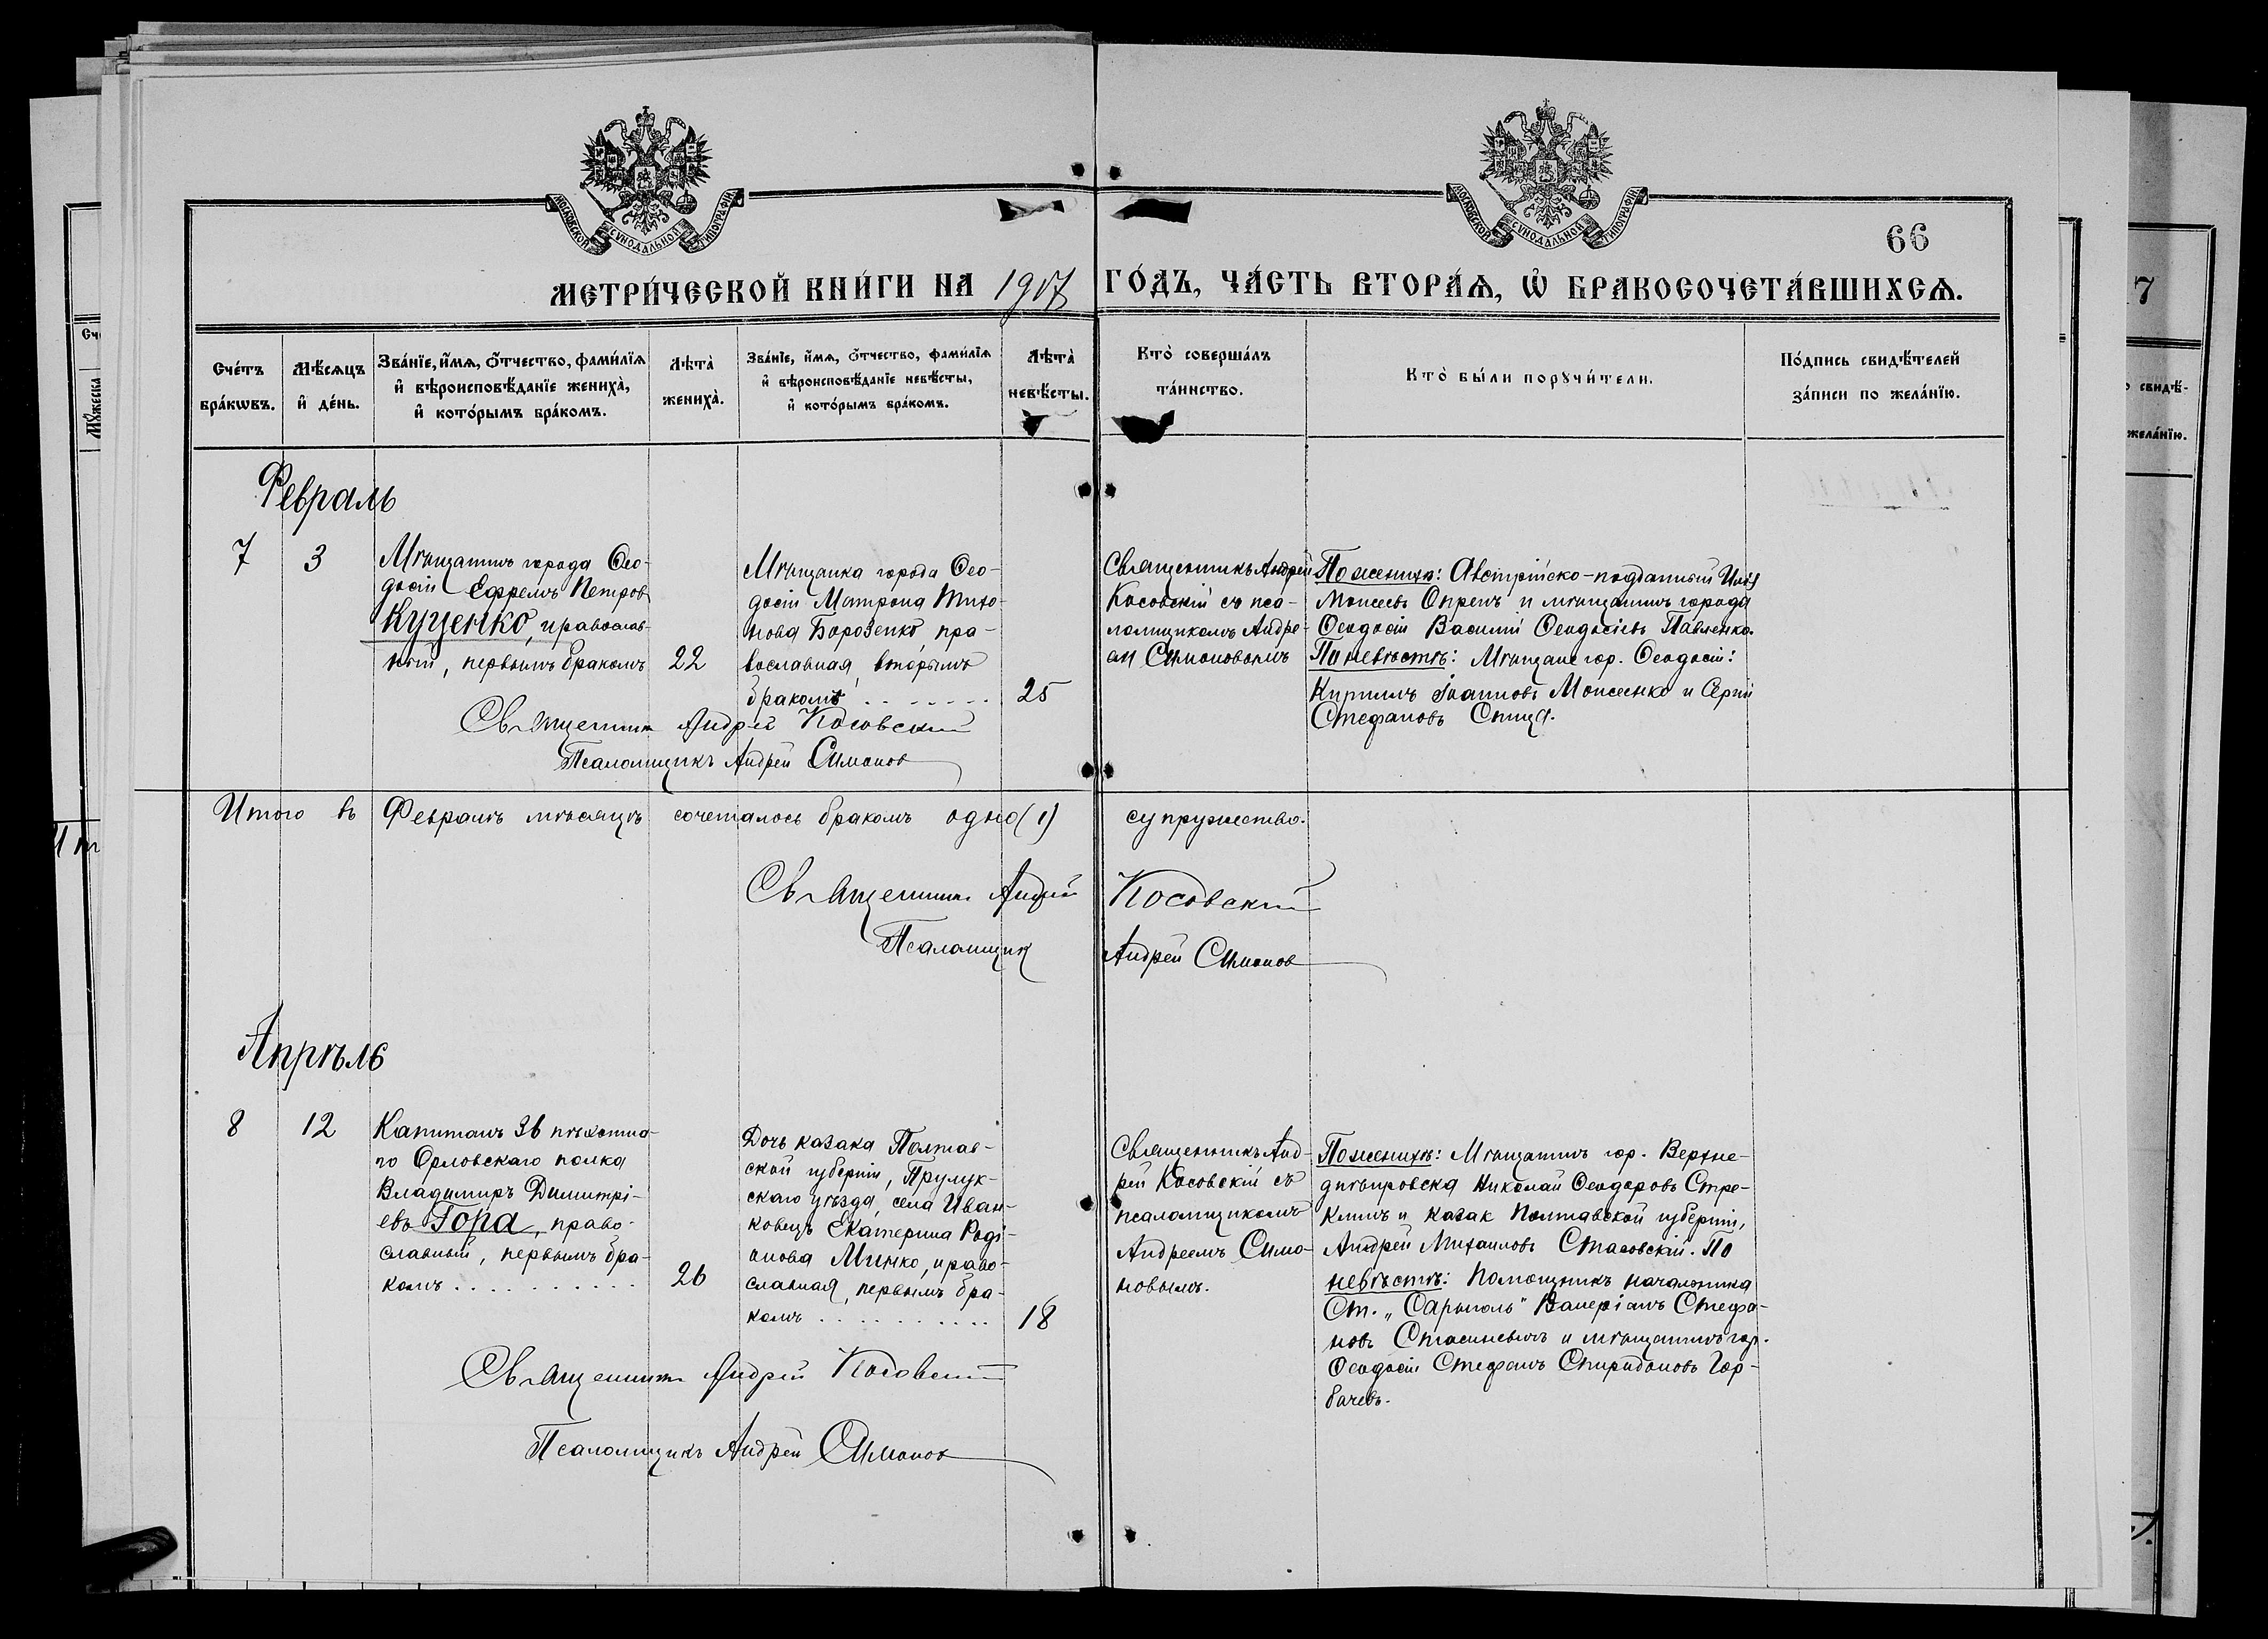 МОСКОВСКОЙ СУНОДАЛЬНОЙ ТИПОГРАФІИ
МОСКОВСКОЙ СУНОДАЛЬНОЙ ТИПОГРАФІИ
66
МЕТРИ́ЧЕСКОЙ КНИ́ГИ НА 1907 ГО́ДЪ, ЧА́СТЬ ВТОРА́Ѧ, Ѡ҆ БРАКОСОЧЕТА́ВШИХСѦ.
Сче́тъ
бра́кѡвъ.
Мѣ́сѧцъ
и҆ де́нь.
Зва́нїе, и҆́мѧ, ѻ҆́тчество, фами́лїѧ
и҆ вѣроисповѣ́данїе жениха̀,
и҆ кото́рымъ бра́комъ.
Лѣта̀
жениха̀.
Зва́нїе, и҆́мѧ, ѻ҆́тчество, фами́лїѧ
и҆ вѣроисповѣ́данїе невѣ́сты,
и҆ кото́рымъ бра́комъ.
Лѣта̀
невѣ́сты.
Кто̀ соверша́лъ
та́инство.
Кто̀ бы́ли порꙋчи́тели.
По́дпись свидѣ́телей
за́писи по жела́нїю.
Февраль
7
3
Мѣщанинъ города Ѳео-
досіи Ефремъ Петров
Куценко, православ-
ный, первымъ бракомъ
22
Мѣщанка города Ѳео-
досіи Матрона Тихо-
нова Борозенко, пра-
вославная, вторымъ
бракомъ . . . . . . .
25
Священникъ Андрей
Косовскій съ пса-
ломщикомъ Андре-
ем Симоновымъ
По женихѣ: Австрійско-подданный
Моисеевъ и мѣщанинъ города
Ѳеодосіи Василій Ѳеодосіевъ Павленко.
По невѣстѣ: Мѣщане гор. Ѳеодосіи:
Кириллъ Іоанновъ Моисеенко и Сергій
Стефановъ Спица.
Священник Андрей Косовский
Псаломщикъ Андрей Симонов
Итого въ Февралѣ мѣсяцѣ сочеталось бракомъ одно (1) супружество.
Священник Андрей Косовский
Псаломщик Андрей Симонов
Апрѣль
8
12
Капитанъ 36 пѣхотна-
го Орловскаго полка
Владимиръ Димитрі-
евъ Гора, право-
славный, первымъ бра-
комъ . . . . . . . . . .
26
Дочь казака Полтав-
ской губерніи, Прулук-
скаго уѣзда, села Иван-
ковецъ Екатерина Роді-
онова Минко, право-
славная, первымъ бра-
комъ . . . . . . . . . .
18
Священникъ Анд-
рей Косовскій съ
псаломщикомъ
Андреемъ Симо-
новымъ.
По женихѣ: Мѣщанинъ гор. Верхне-
днѣпровска Николай Ѳеодоровъ Стре-
и казак Полтавской губерніи,
Андрей Михаиловъ Стасовскій. По
невѣстѣ: Помощникъ начальника
Ст. „Сарыголь" Валеріанъ Стефа-
новъ и мѣщанинъ гор.
Ѳеодосіи Стефанъ Спиридоновъ Гор-
бачевъ.
Священник Андрей Косовский
Псаломщикъ Андрей Симонов